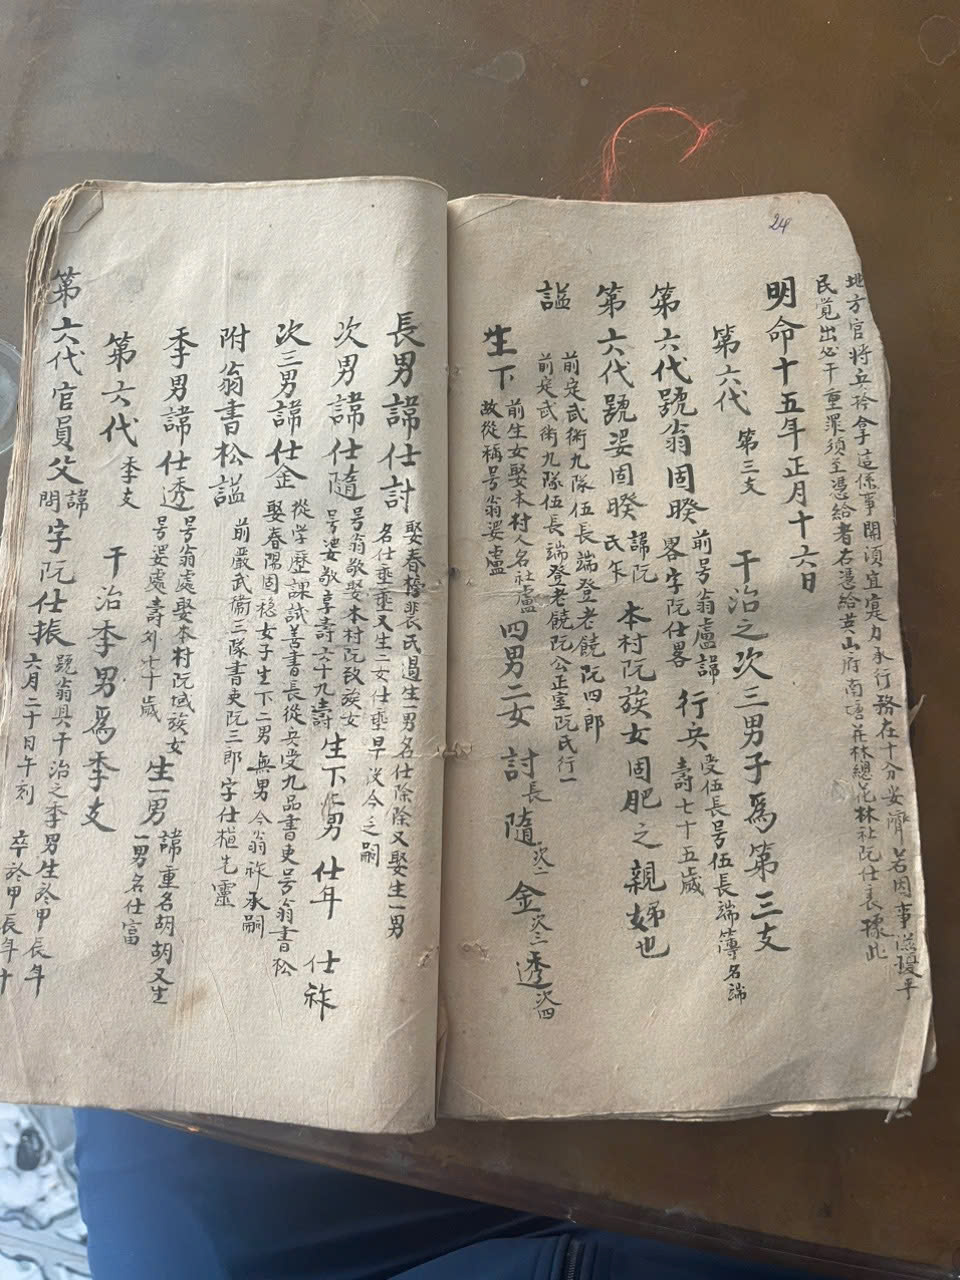 24
地方官將兵衿拿這係事開須宜寔力承行務在十分安濟若因事滋擾平
民覚出必干重罪須至憑給者右憑給 山府南塘 林總花林社阮仕 據此
明命十五年正月十六日
第六代 第三支 干治之次三男子爲第三支
第六代號翁固暌 前号翁盧諱 畧字阮仕畧 行兵 受伍長号伍長端簿名端 壽七十五歲
第六代號婆固暌 諱阮 氏年 本村阮族女固肥之親娣也
謚 前定武術九隊伍長端登老饒阮四郎
前定武術九隊伍長端登老饒阮公正室阮氏行一
生下 前生女娶本村人名社盧 故從稱号翁婆盧 四男二女 討長 隨次二 金次三 透次四
長男諱仕討 娶春 裴氏過生一男名仕除除又娶生一男 名仕 又生二女仕 早没今乏嗣
次男諱仕隨 号翁敬娶本村阮致族女 号婆敬享壽六十九壽 生下二男 仕年 仕祚
次三男諱仕金 從学歷課試善書長從兵受九品書吏号翁書松 娶春陽固穏女子生下二男無男今翁祚承嗣
附翁書松謚 前嚴武衛三隊書吏阮三郎字仕植先靈
季男諱仕透 号翁處娶本村阮域族女 号婆處壽外七十歲 生一男 諱重名胡胡又生 一男名仕富
第六代 季支 干治季男爲季支
第六代官員父 諱問 字阮仕振 號翁具干治之季男生於甲辰年 六月二十日午刻 卒於甲辰年十